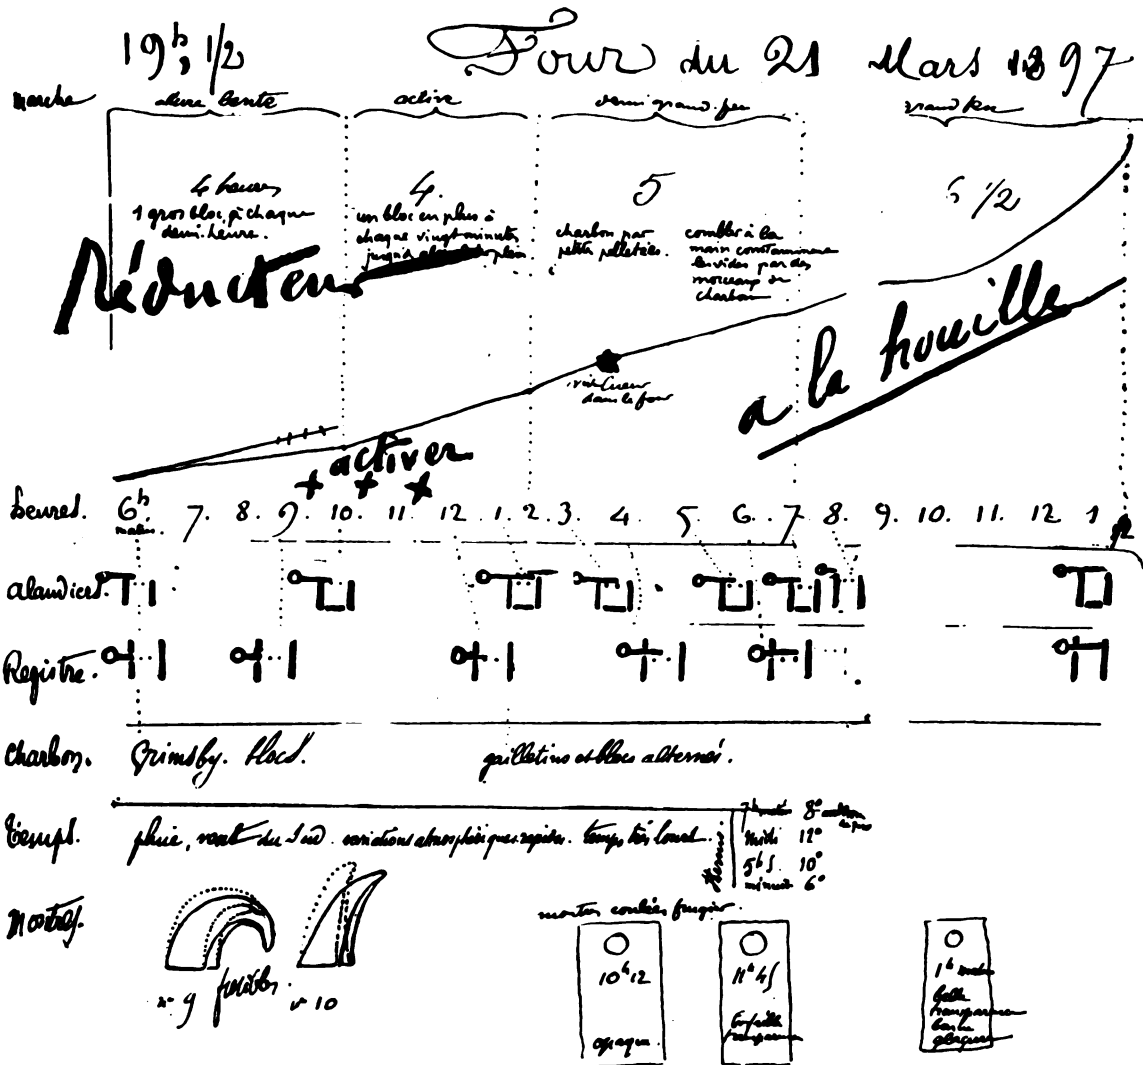 19h, 1/2 Four du 21 Mars 1897
Marche allure lente active demi grand feu grand feu
4 heures 4. 5 6 1/2
1 gros bloc, à chaque
demi-heure.
un bloc en plus à
chaque vingt minutes
jusqu'à plein
charbon par
petites pelletées.
combler à la
main constamment
les vides par des
morceaux de
charbon
Réducteur
à la houille
dans le four
activer
heures. 6h 7. 8. 9. 10. 11. 12. 1. 2. 3. 4. 5 6. 7. 8. 9. 10. 11. 12 1 1/2
matin.
alandiers.
Registre.
Charbon. Grimsby. blocs. gailletins et blocs alternés.
Temps. pluie, vent du Sud. variations atmosphériques rapides. temps très lourd.
7h matin 8°
midi 12°
5h s. 10°
minuit 6°
Montres.
montres coulées
n° 9 n° 10
10h 12
opaque.
11h 45
1h matin
belle
transparence